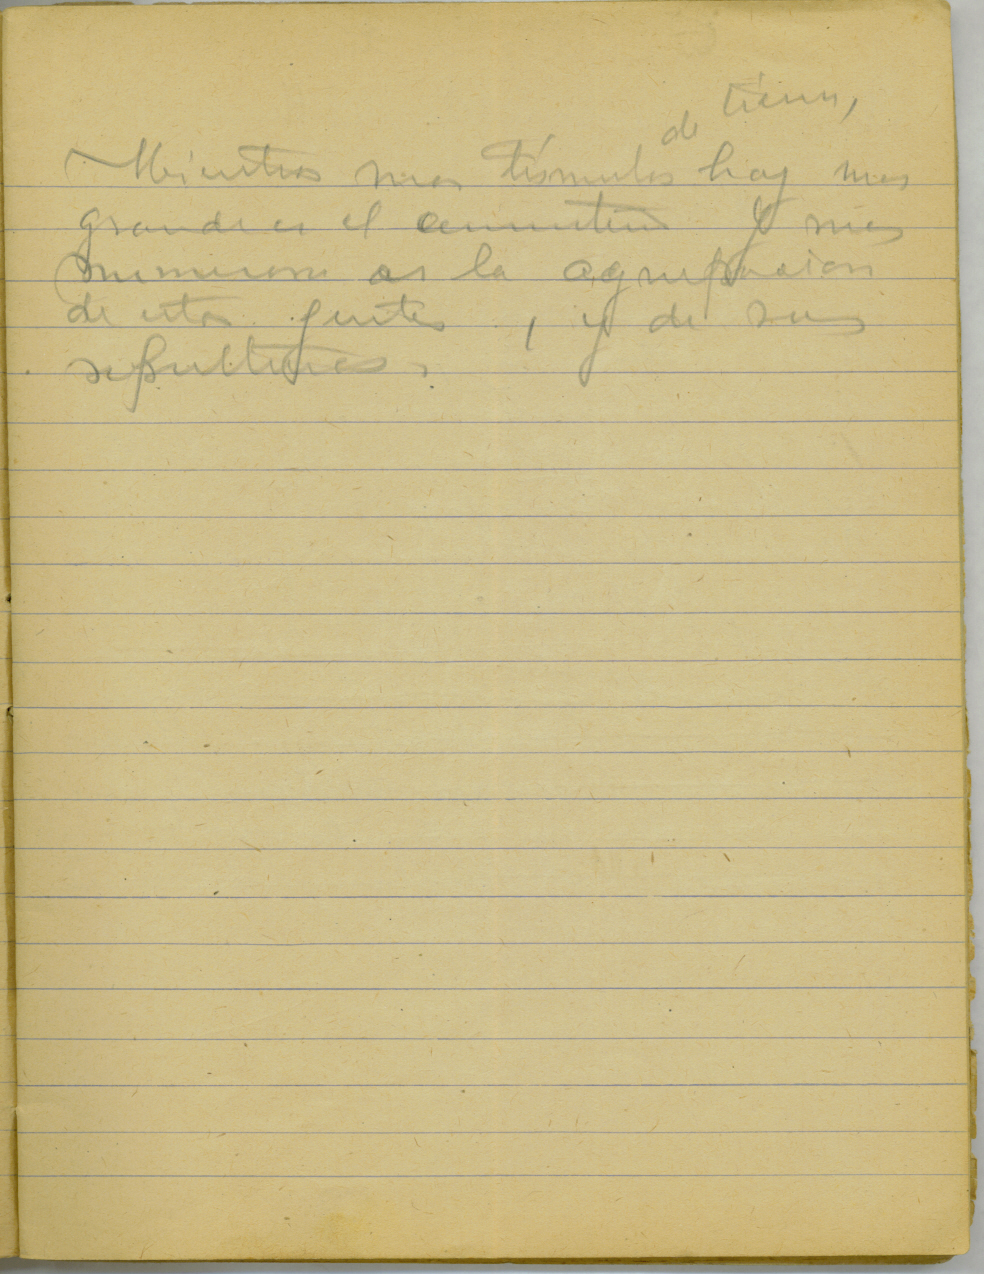 de tierra,
Mientras mas túmulos hay mas
grande es el cementerio y mas
numerosa es la agrupacion
de estas gentes, y de sus
sepulturas.